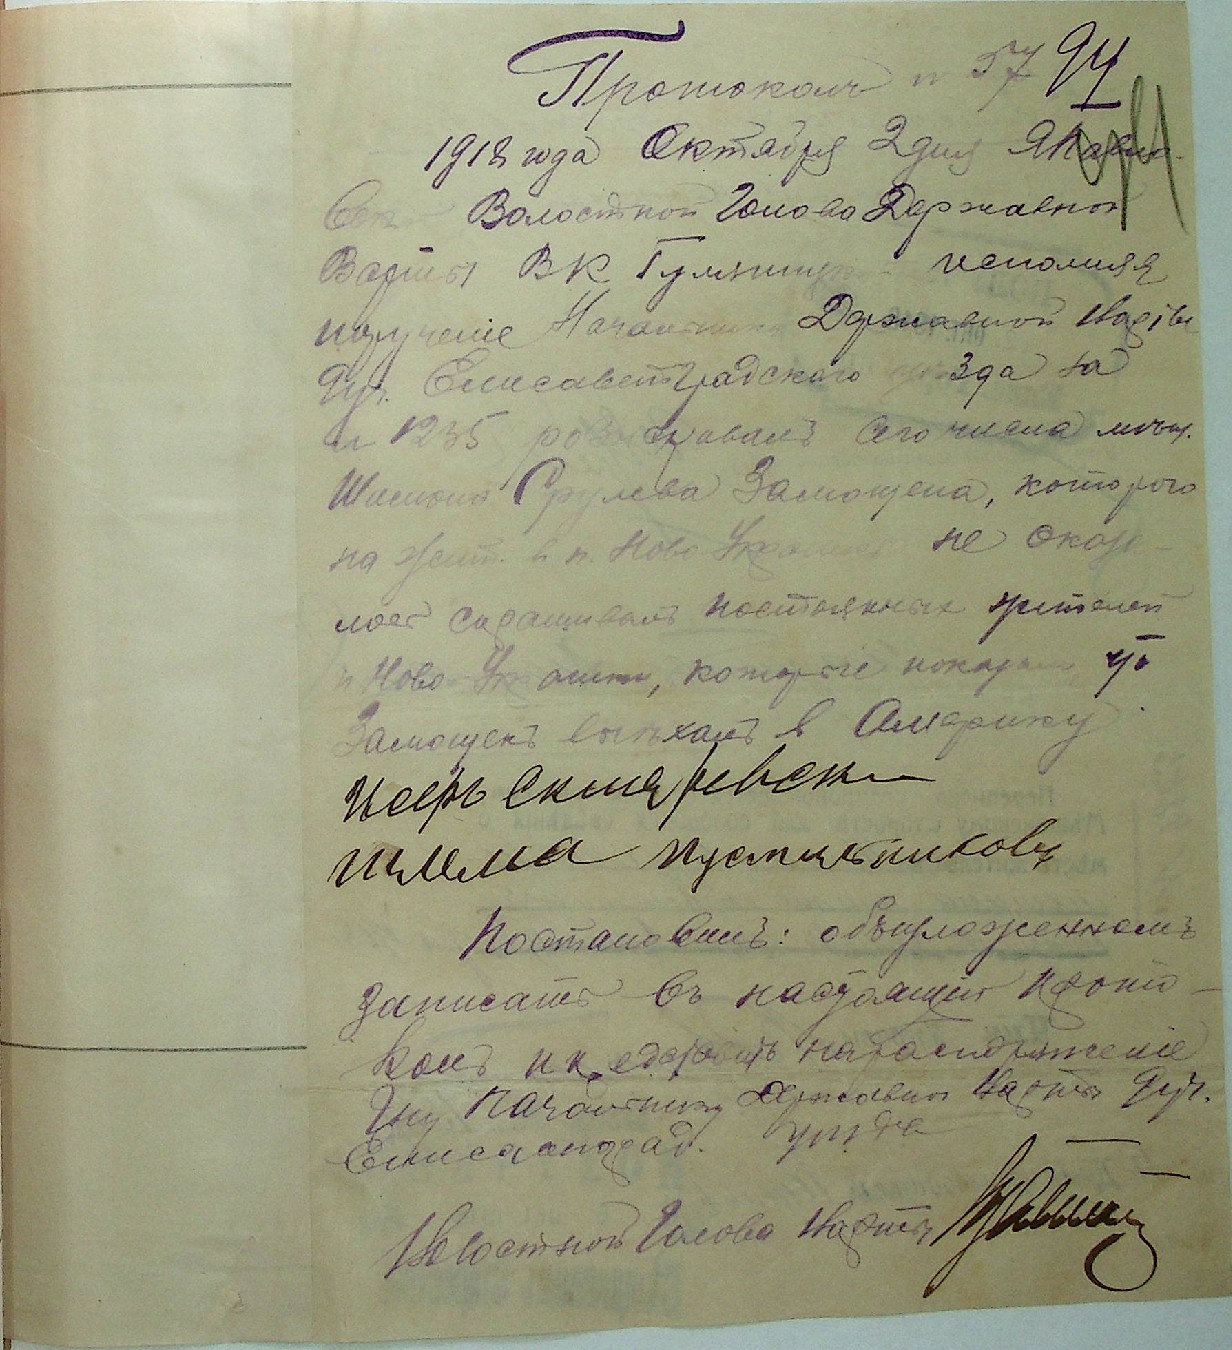 Протоколъ n 57 94
1918 года Октября 2 дня Я Павло-
Волостной Голова Державной
Варты В К исполняя
порученіе Начальника Державной Варты
Елисаветградского уезда за
n 1235 розыскивалъ сего числа мещ.
Шислиона Срулева Замощена, котораго
на жит. в п. Ново Украинке не оказа-
лось спрашивалъ постоянных жителей
п Ново Украинки, которые показали что
Замощенъ выехалъ в Америку
шлема
Постановилъ: объ изложенномъ
записать въ настоящий прото-
колъ и представить на распоряженіе
Гну Начальнику Державной Варты
Елисаветград. уезда
Волостной Голова Варты